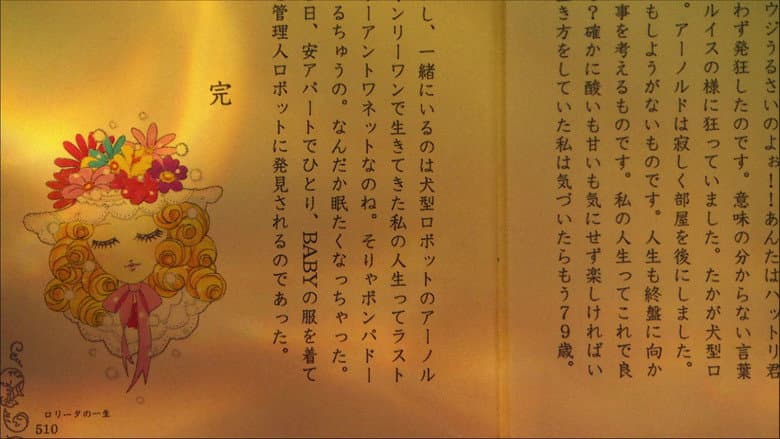 ウジうるさいのよぉ！！あんたはハットリ君
わず発狂したのです。意味の分からない言葉
ルイスの様に狂っていました。たかが犬型ロ
。アーノルドは寂しく部屋を後にしました。
もしようがないものです。人生も終盤に向か
事を考えるものです。私の人生ってこれで良
？確かに酸いも甘いも気にせず楽しければい
き方をしていた私は気づいたらもう７９歳。
し、一緒にいるのは犬型ロボットのアーノル
ンリーワンで生きてきた私の人生ってラスト
ーアントワネットなのね。そりゃポンパドー
るちゅうの。なんだか眠たくなっちゃった。
日、安アパートでひとり、BABYの服を着て
管理人ロボットに発見されるのであった。
完
ロリータの一生
510